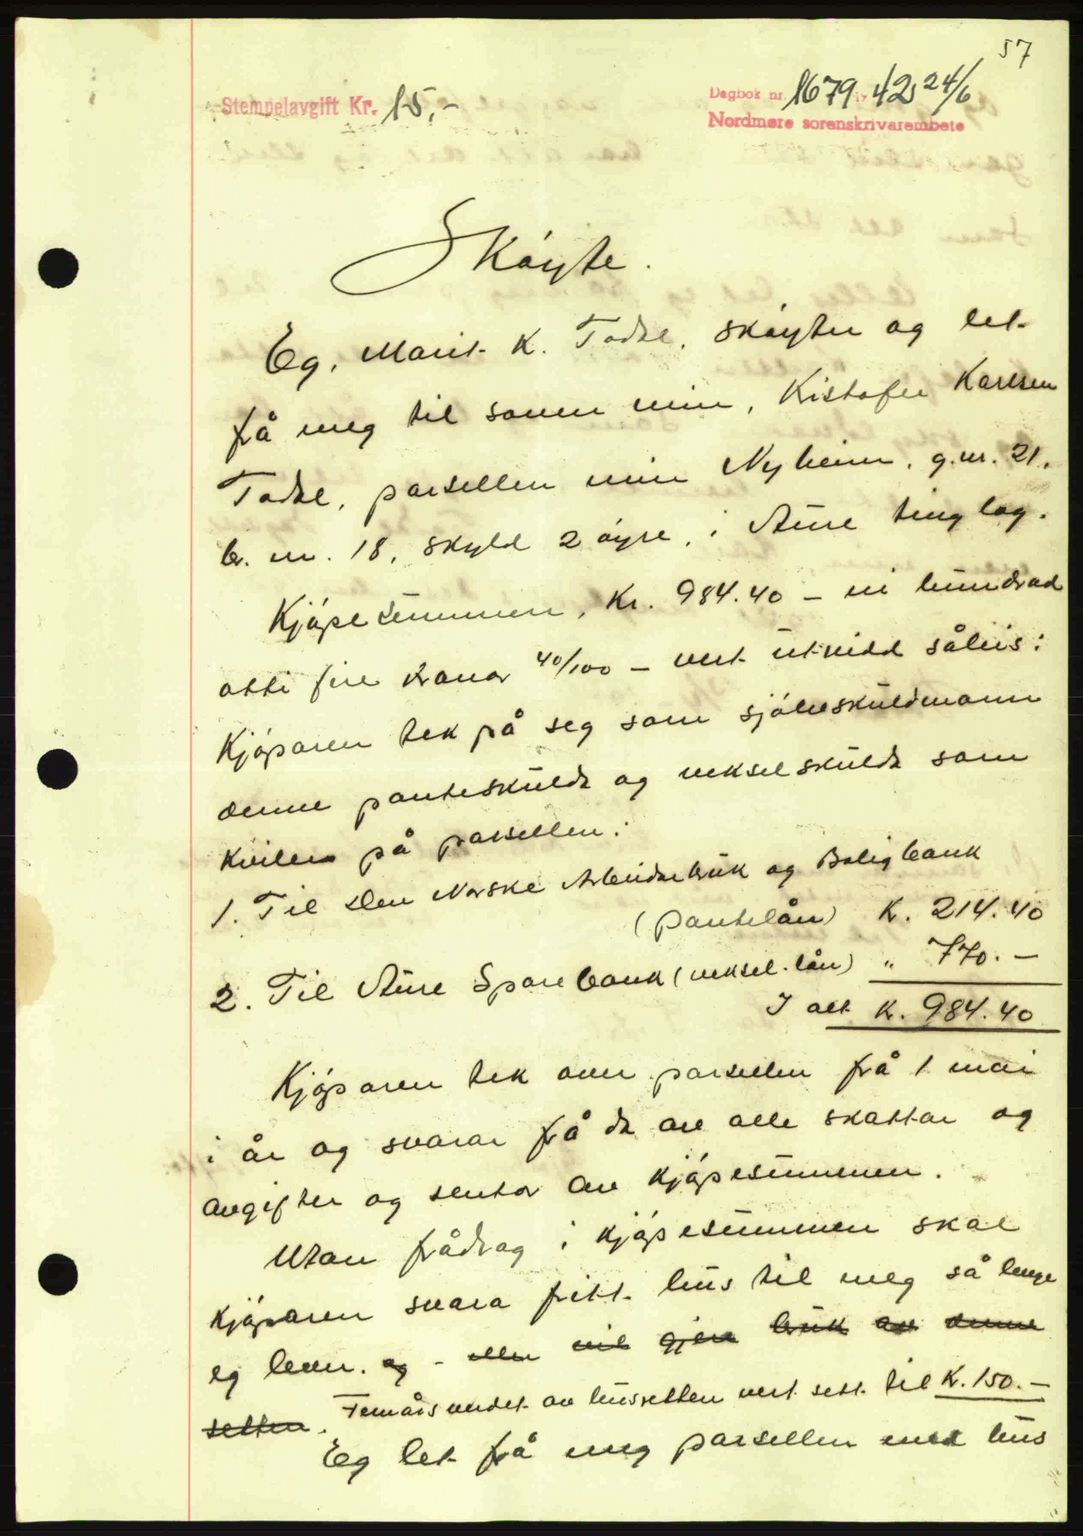 57
Stempelavgift Kr. 15,-
Dagbok nr. 1679 42 24/6
Nordmøre sorenskrivarembete
Skøyte.
Eg, Marit K. Todal, skøyter og let
frå meg til sonen min, Kistofer Karlsen
Todal, parsellen min Nyheim, g.nr. 21,
br. nr. 18, skyld 2 øyre, i Aure tinglag.
Kjøpesummen, Kr. 984.40 – ni hundrad
otti fire kronor 40/100 – vert utreidd såleis:
Kjøparen tek på seg som sjølvskuldmann
denne panteskuld og vekselskuld som
kviler på parsellen:
1. Til Den Norske Arbeidarbruk og Boligbank
(pantelån) K. 214.40
2. Til Aure Sparebank (veksel.lån) " 770.–
I alt K. 984.40
Kjøparen tek over parsellen frå 1 mai
i år og svarar frå då av alle skattar og
avgifter og rentor av kjøpesummen.
Utan frådrag i kjøpesummen skal
kjøparen svara fritt hus til meg så lenge
eg lever. og - eller vil gjera bruk av denne
retten. Femårsverdet av husretten vert sett til K. 150.–
Eg let frå meg parsellen med hus